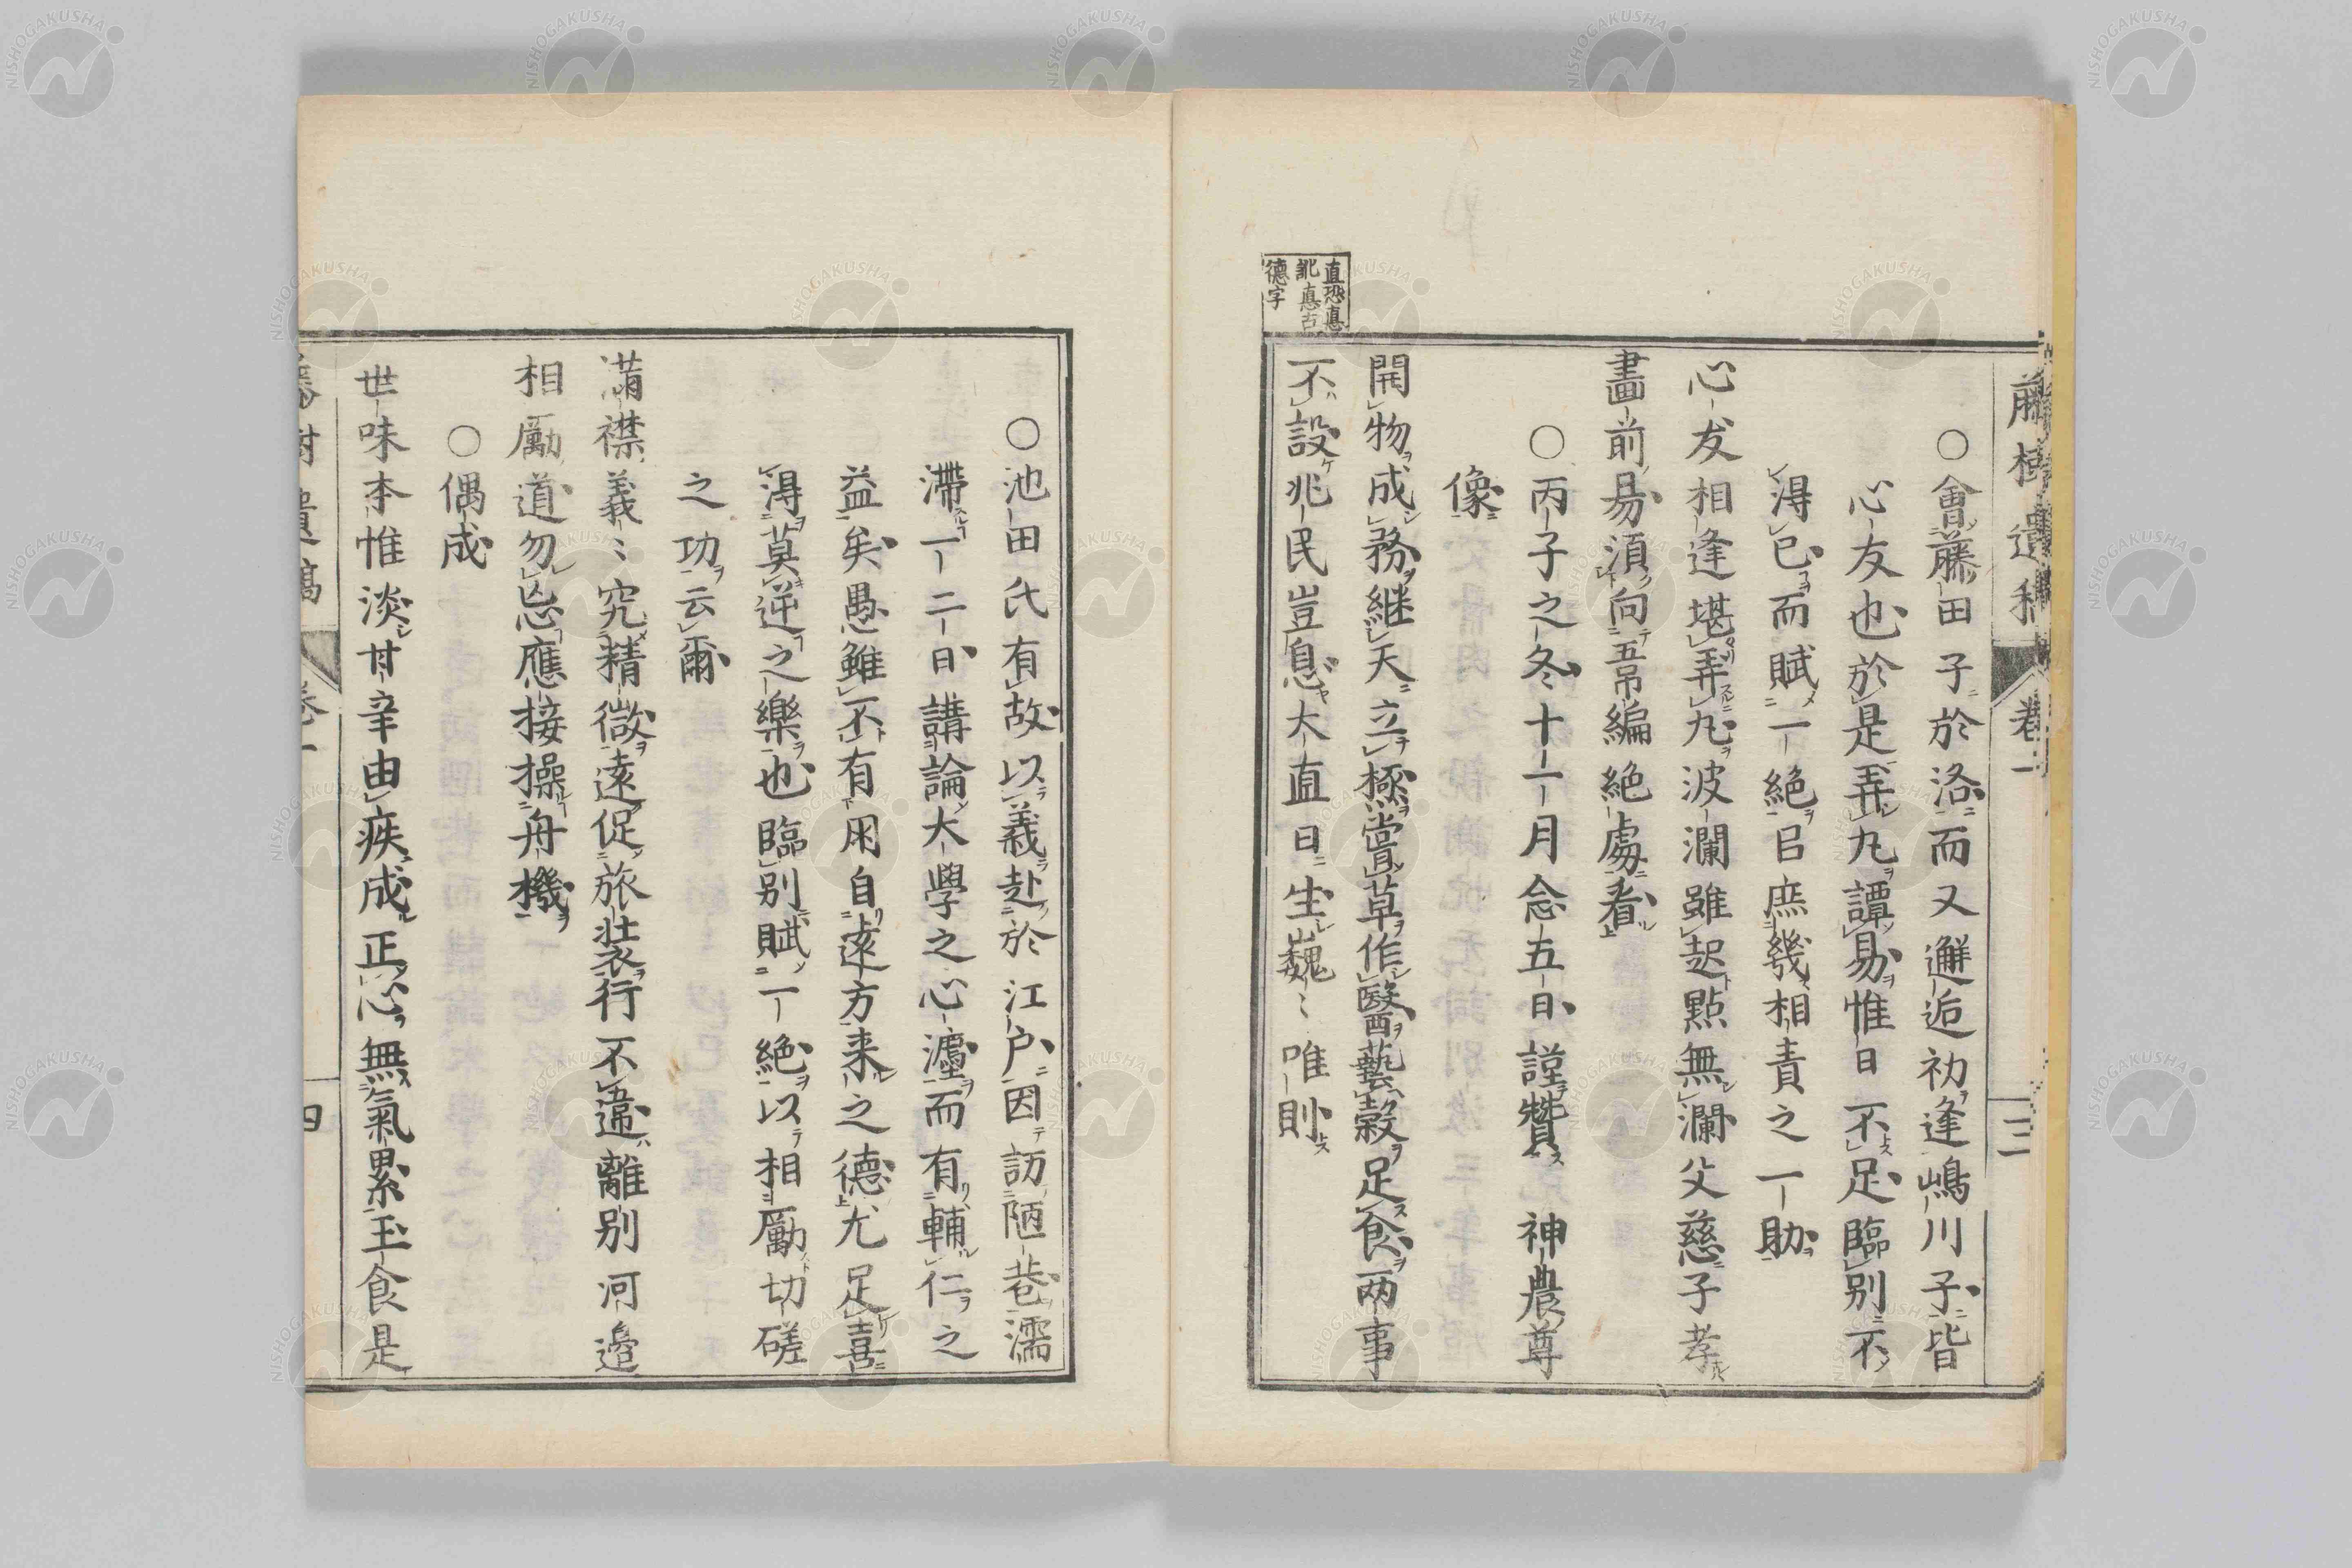 藤樹遺稿 卷一 三
○會藤田子於洛而又邂逅初逢嶋川子皆
心友也於是弄丸譚易惟日不足臨別不
得已而賦一絶㠯庶幾相責之一助
心友相逢堪弄丸波瀾雖起點無瀾父慈子孝
畫前易須向五吊編絶處看
○丙子之冬十一月念五日謹賛神農尊
像
開物成務継天立極嘗草作醫藝穀足食両事
不設兆民豈息大直日生巍〻唯則
直恐悳
訛悳古
德字
○池田氏有故以義赴於江戸因訪陋巷濡
滞一二日講論大學之心灋而有輔仁之
益矣愚雖不有朋自遠方来之德尤足喜
得莫逆之樂也臨別賦一絶以相勵切磋
之功云爾
滿襟義〻究精微遠促旅裝行不違離別河邉
相勵道勿忘應接操舟機
○偶成
世味本惟淡甘辛由疾成正心無氣累玉食是
藤樹遺稿 卷一 四
NISHOGAKUSHA